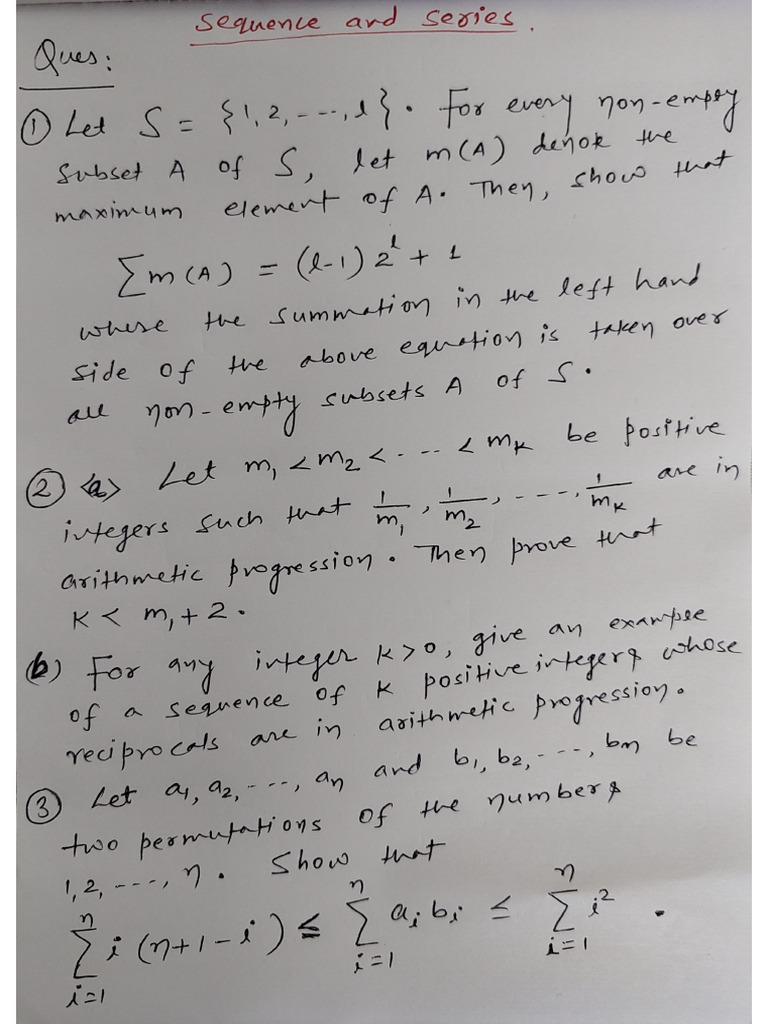 Sequence and series.
Ques:
① Let S = {1, 2, ---, l}. For every non-empty
subset A of S, let m(A) denote the
maximum element of A. Then, show that
∑m(A) = (l-1) 2^l + 1
where the summation in the left hand
side of the above equation is taken over
all non-empty subsets A of S.
② (a) Let m₁ < m₂ < ---- < mₖ be positive
integers such that 1/m₁, 1/m₂, ----, 1/mₖ are in
arithmetic progression. Then prove that
K < m₁ + 2.
(b) For any integer K > 0, give an example
of a sequence of K positive integers whose
reciprocals are in arithmetic progression.
③ Let a₁, a₂, ---, aₙ and b₁, b₂, ---, bₙ be
two permutations of the numbers
1, 2, ----, n. Show that
∑_{i=1}^{n} i (n+1-i) ≤ ∑_{i=1}^{n} aᵢ bᵢ ≤ ∑_{i=1}^{n} i².